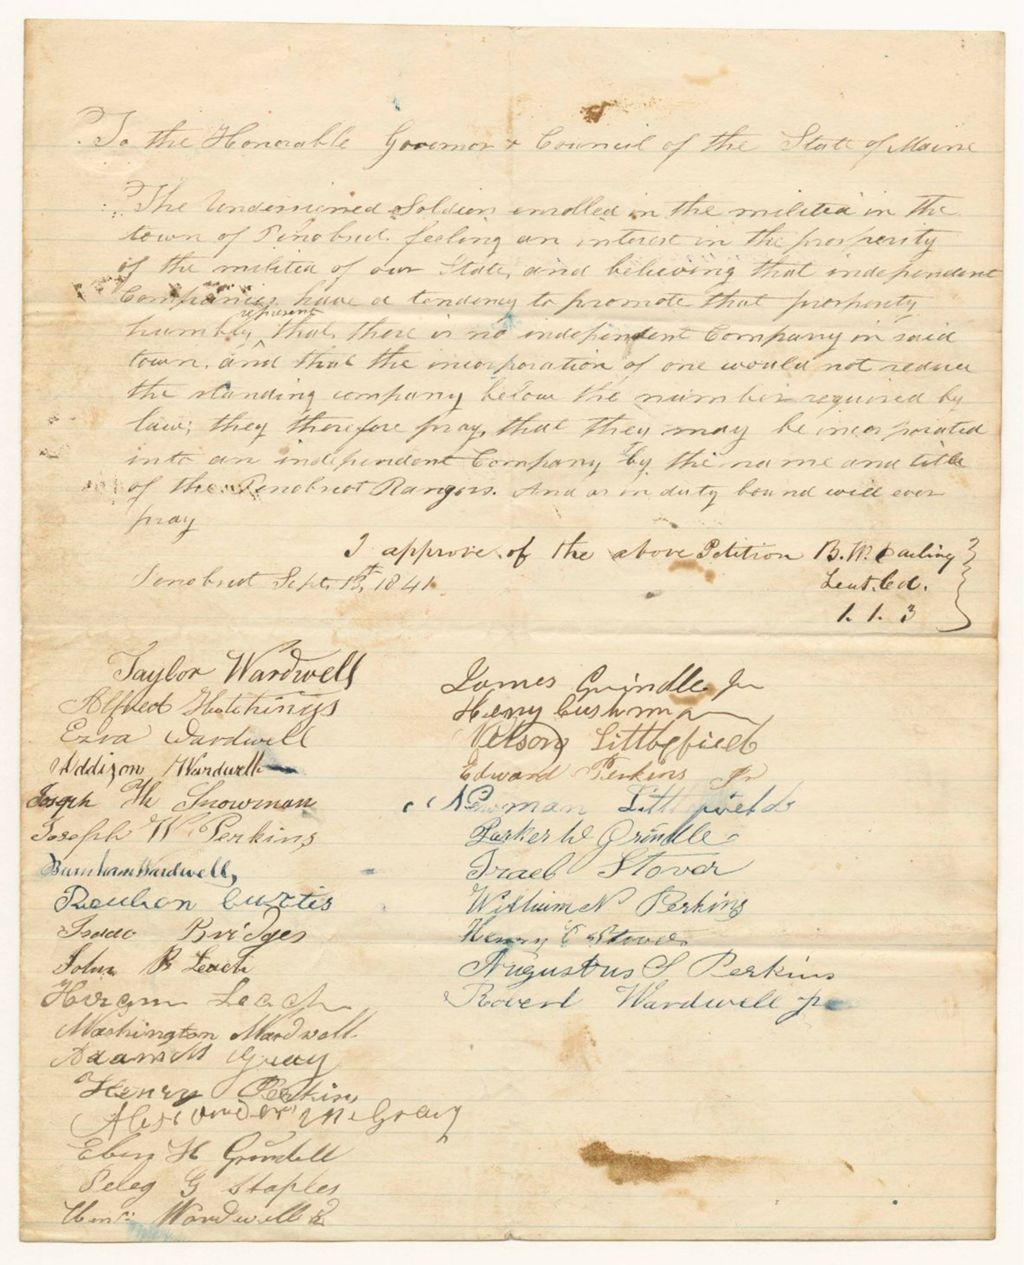 To the Honorable Governor & Council of the State of Maine
The Undersigned Soldiers enrolled in the militia in the
town of Penobscot feeling an interest in the prosperity
of the militia of our State, and believing that independent
Companies have a tendency to promote that prosperity
humbly represent that there is no independent Company in said
town, and that the incorporation of one would not reduce
the standing company below the number required by
law; they therefore pray, that they may be incorporated
into an independent Company by the name and title
of the Penobscot Rangers. And as in duty bound will ever
pray
I approve of the above Petition B. W. Darling
Penobscot Sept. 1841. Leut. Col.
1. 1. 3
Taylor Wardwell
Alfred Hutchings
Ezra Wardwell
Addizon Wardwell
Joseph W. Snowman
Joseph W Perkins
Burnham Wardwell,
Reuben Curtis
Isaac Bridges
John B Leach
Hiram Leach
Washington Wardwell
Adam M Gray
Henry Perkins
Alexander McGray
Eben H Grindell
Peleg G Staples
Wardwell
James Grindle Jr
Henry Cushman
Nelson Littlefield
Edward Perkins Jr
Newman Littlefield
Parker W Grindle
Israel Stover
William N Perkins
Henry C Stover
Augustus S Perkins
Robert Wardwell jr